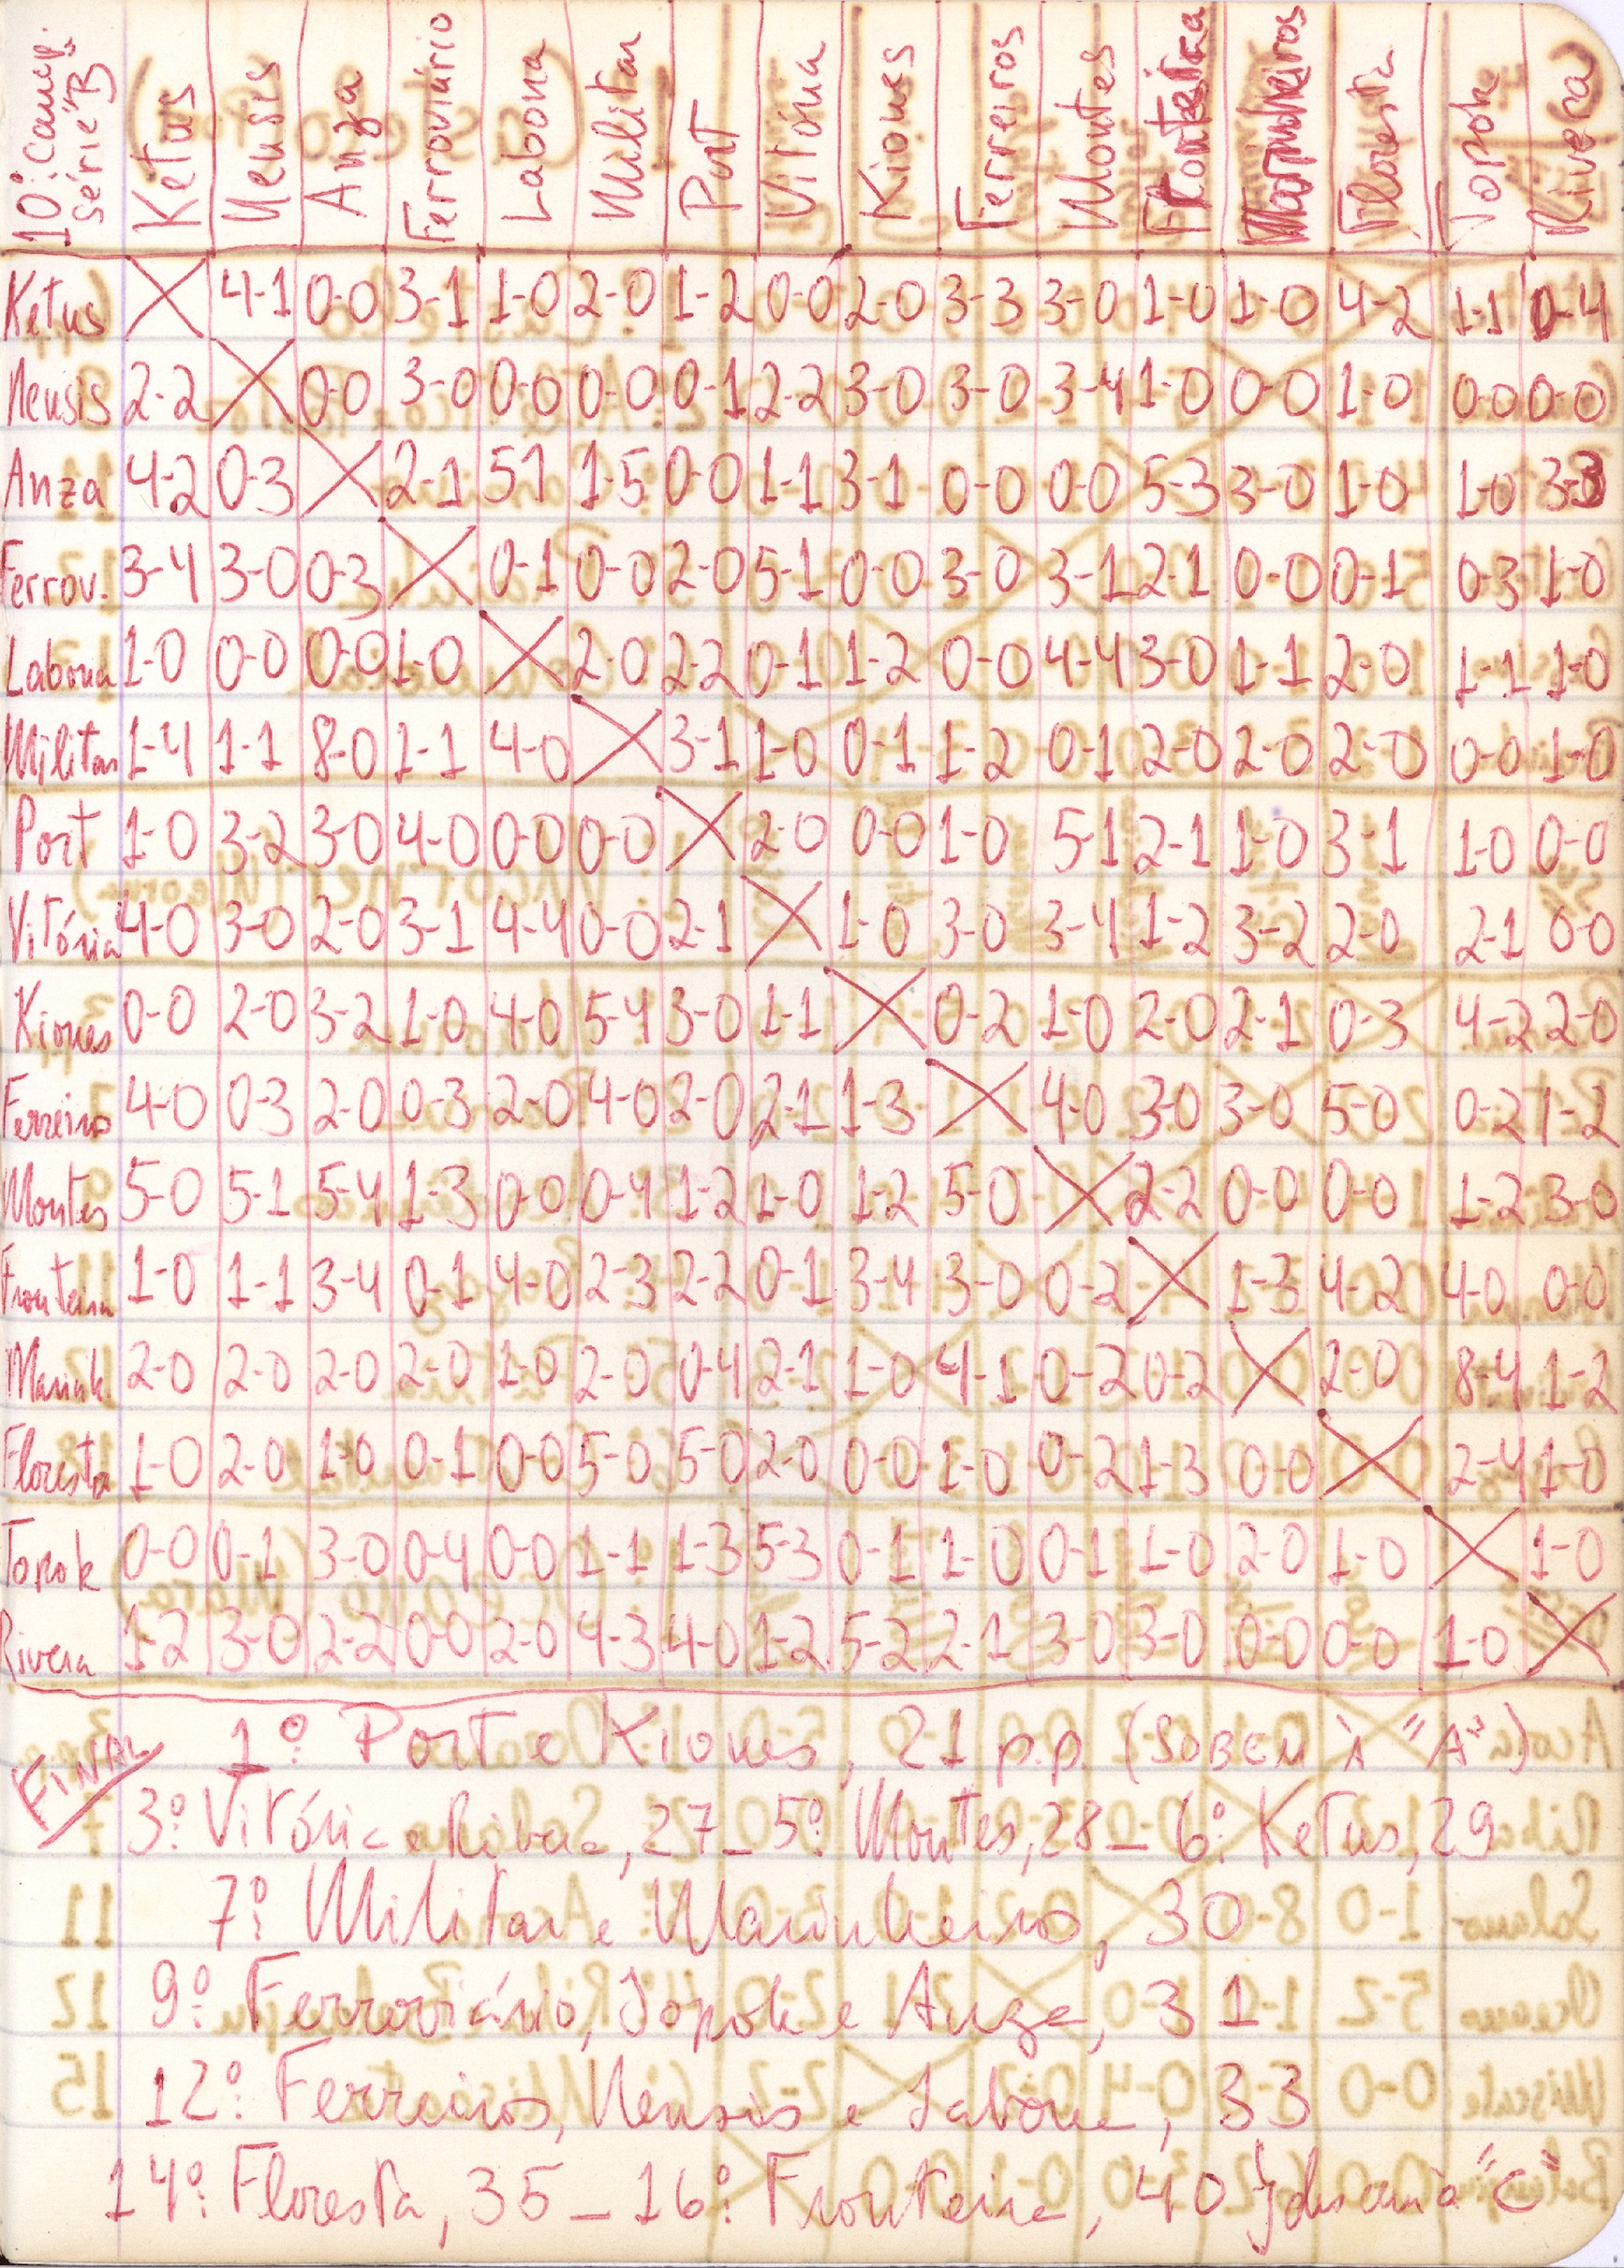 10º camp. série "B" Ketus Neusis Anza Ferroviário Labona Militar Port Vitória Kiones Ferreiros Montes Fronteira Marinheiros Floresta Topok Rivera
Ketus X 4-1 0-0 3-1 1-0 2-0 1-2 0-0 2-0 3-3 3-0 1-0 1-0 4-2 1-1 0-4
Neusis 2-2 X 0-0 3-0 0-0 0-0 0-1 2-2 3-0 3-0 3-4 1-0 0-0 1-0 0-0 0-0
Anza 4-2 0-3 X 2-1 5-1 1-5 0-0 1-1 3-1 0-0 0-0 5-3 3-0 1-0 1-0 3-3
Ferrov. 3-4 3-0 0-3 X 0-1 0-0 2-0 5-1 0-0 3-0 3-1 2-1 0-0 0-1 0-3 1-0
Labona 1-0 0-0 0-0 1-0 X 2-0 2-2 0-1 1-2 0-0 4-4 3-0 1-1 2-0 1-1 1-0
Militar 1-4 1-1 8-0 1-1 4-0 X 3-1 1-0 0-1 1-2 0-1 2-0 2-0 2-0 0-0 1-0
Port 1-0 3-2 3-0 4-0 0-0 0-0 X 2-0 0-0 1-0 5-1 2-1 1-0 3-1 1-0 0-0
Vitória 4-0 3-0 2-0 3-1 4-4 0-0 2-1 X 1-0 3-0 3-4 1-2 3-2 2-0 2-1 0-0
Kiones 0-0 2-0 3-2 1-0 4-0 5-4 3-0 1-1 X 0-2 1-0 2-0 2-1 0-3 4-2 2-0
Ferreiros 4-0 0-3 2-0 0-3 2-0 4-0 2-0 2-1 1-3 X 4-0 3-0 3-0 5-0 0-2 1-2
Montes 5-0 5-1 5-4 1-3 0-0 0-4 1-2 1-0 1-2 5-0 X 2-2 0-0 0-0 1-2 3-0
Fronteira 1-0 1-1 3-4 0-1 4-0 2-3 2-2 0-1 3-4 3-0 0-2 X 1-3 4-2 4-0 0-0
Marinh. 2-0 2-0 2-0 2-0 1-0 2-0 0-4 2-1 1-0 4-1 0-2 0-2 X 2-0 8-4 1-2
Floresta 1-0 2-0 1-0 0-1 0-0 5-0 5-0 2-0 0-0 1-0 0-2 1-3 0-0 X 2-4 1-0
Topok 0-0 0-1 3-0 0-4 0-0 1-1 1-3 5-3 0-1 1-0 0-1 1-0 2-0 1-0 X 1-0
Rivera 1-2 3-0 2-2 0-0 2-0 4-3 4-0 1-2 5-2 2-1 3-0 3-0 0-0 0-0 1-0 X
FINAL 1º: Port e Kiones, 21 p.p. (SOBEM À "A")
3º: Vitória e Rivera, 27 _ 5º: Montes, 28 _ 6º: Ketus, 29
7º: Militar e Marinheiros, 30
9º: Ferroviário, Topok e Anza, 31
12º: Ferreiros, Neusis e Labona, 33
14º: Floresta, 35 _ 16º: Fronteira, 40 } descem à "C"